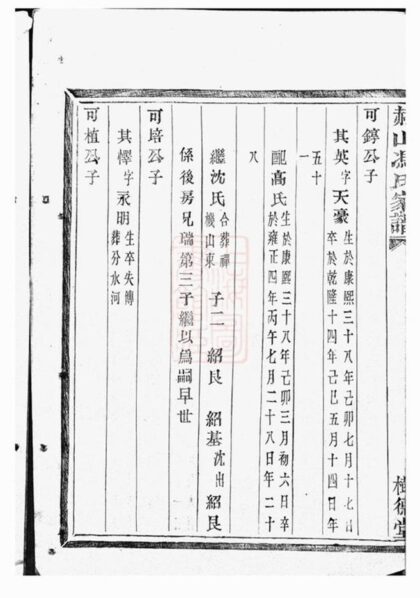 赫山馮氏家譜
樹德堂
可錞公子
其英字天豪生於康熙三十八年己卯七月十七日
卒於乾隆十四年己巳五月十四日年
五十一
配高氏生於康熙三十八年己卯三月初六日卒
於雍正四年丙午七月二十八日年二十
八
繼沈氏合葬禪
機山東子二紹良紹基沈出紹良
係後房兄瑞第三子繼以為嗣早世
可培公子
其懌字永明生卒失傳
葬分水河
可植公子